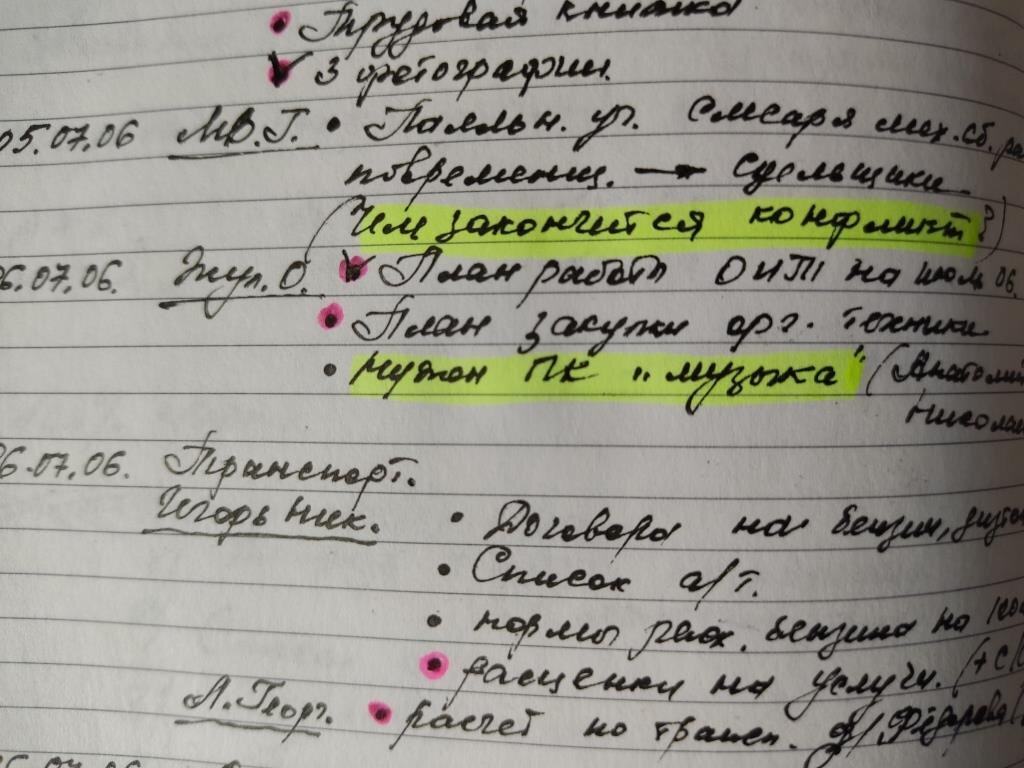 • Трудовая книжка
3 фотографии.
05.07.06 М.В.Г. • уч. Слесаря мех.сб.
повременщ. → сдельщики
(Чем закончится конфликт?)
06.07.06. Жул. О. План работ ОИТ на июль 06.
• План закупки орг. техники
• Нужен ПК „музыка" (Анатолий
Никола
06.07.06. Транспорт.
Игорь Ник. • Договора на бензин,
• Список а/т.
• нормы расх. бензина на 100
• расценки на услуги. (+ с
Л. Георг. • расчет по трансп. Фёдорова